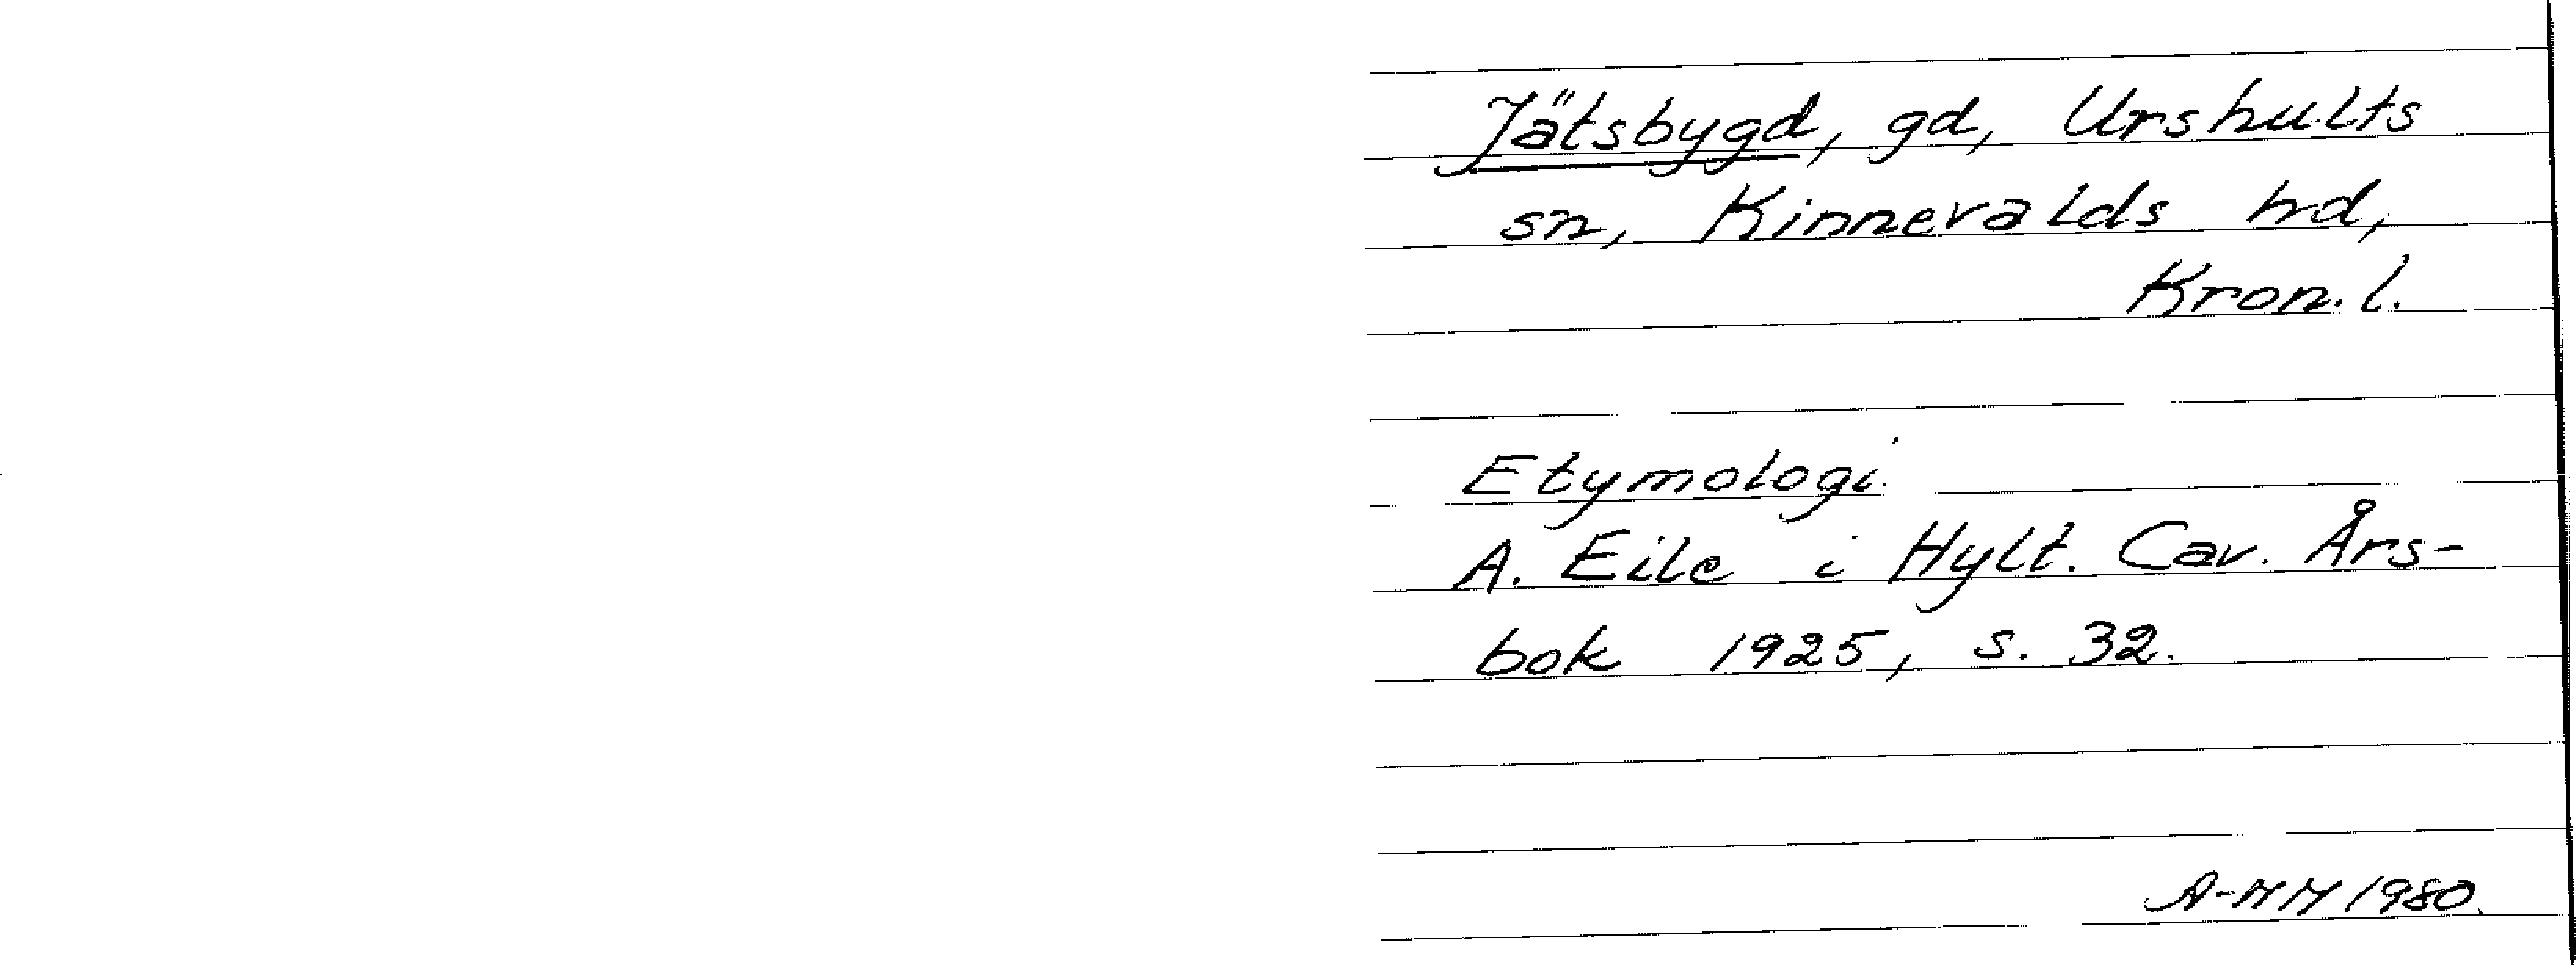 Jätsbygd, gd, Urshults
sn, Kinnevalds hd,
Kron. l.
Etymologi.
A. Eile i Hylt. Cav. Års-
bok 1925, s. 32.
A-MM 1980.